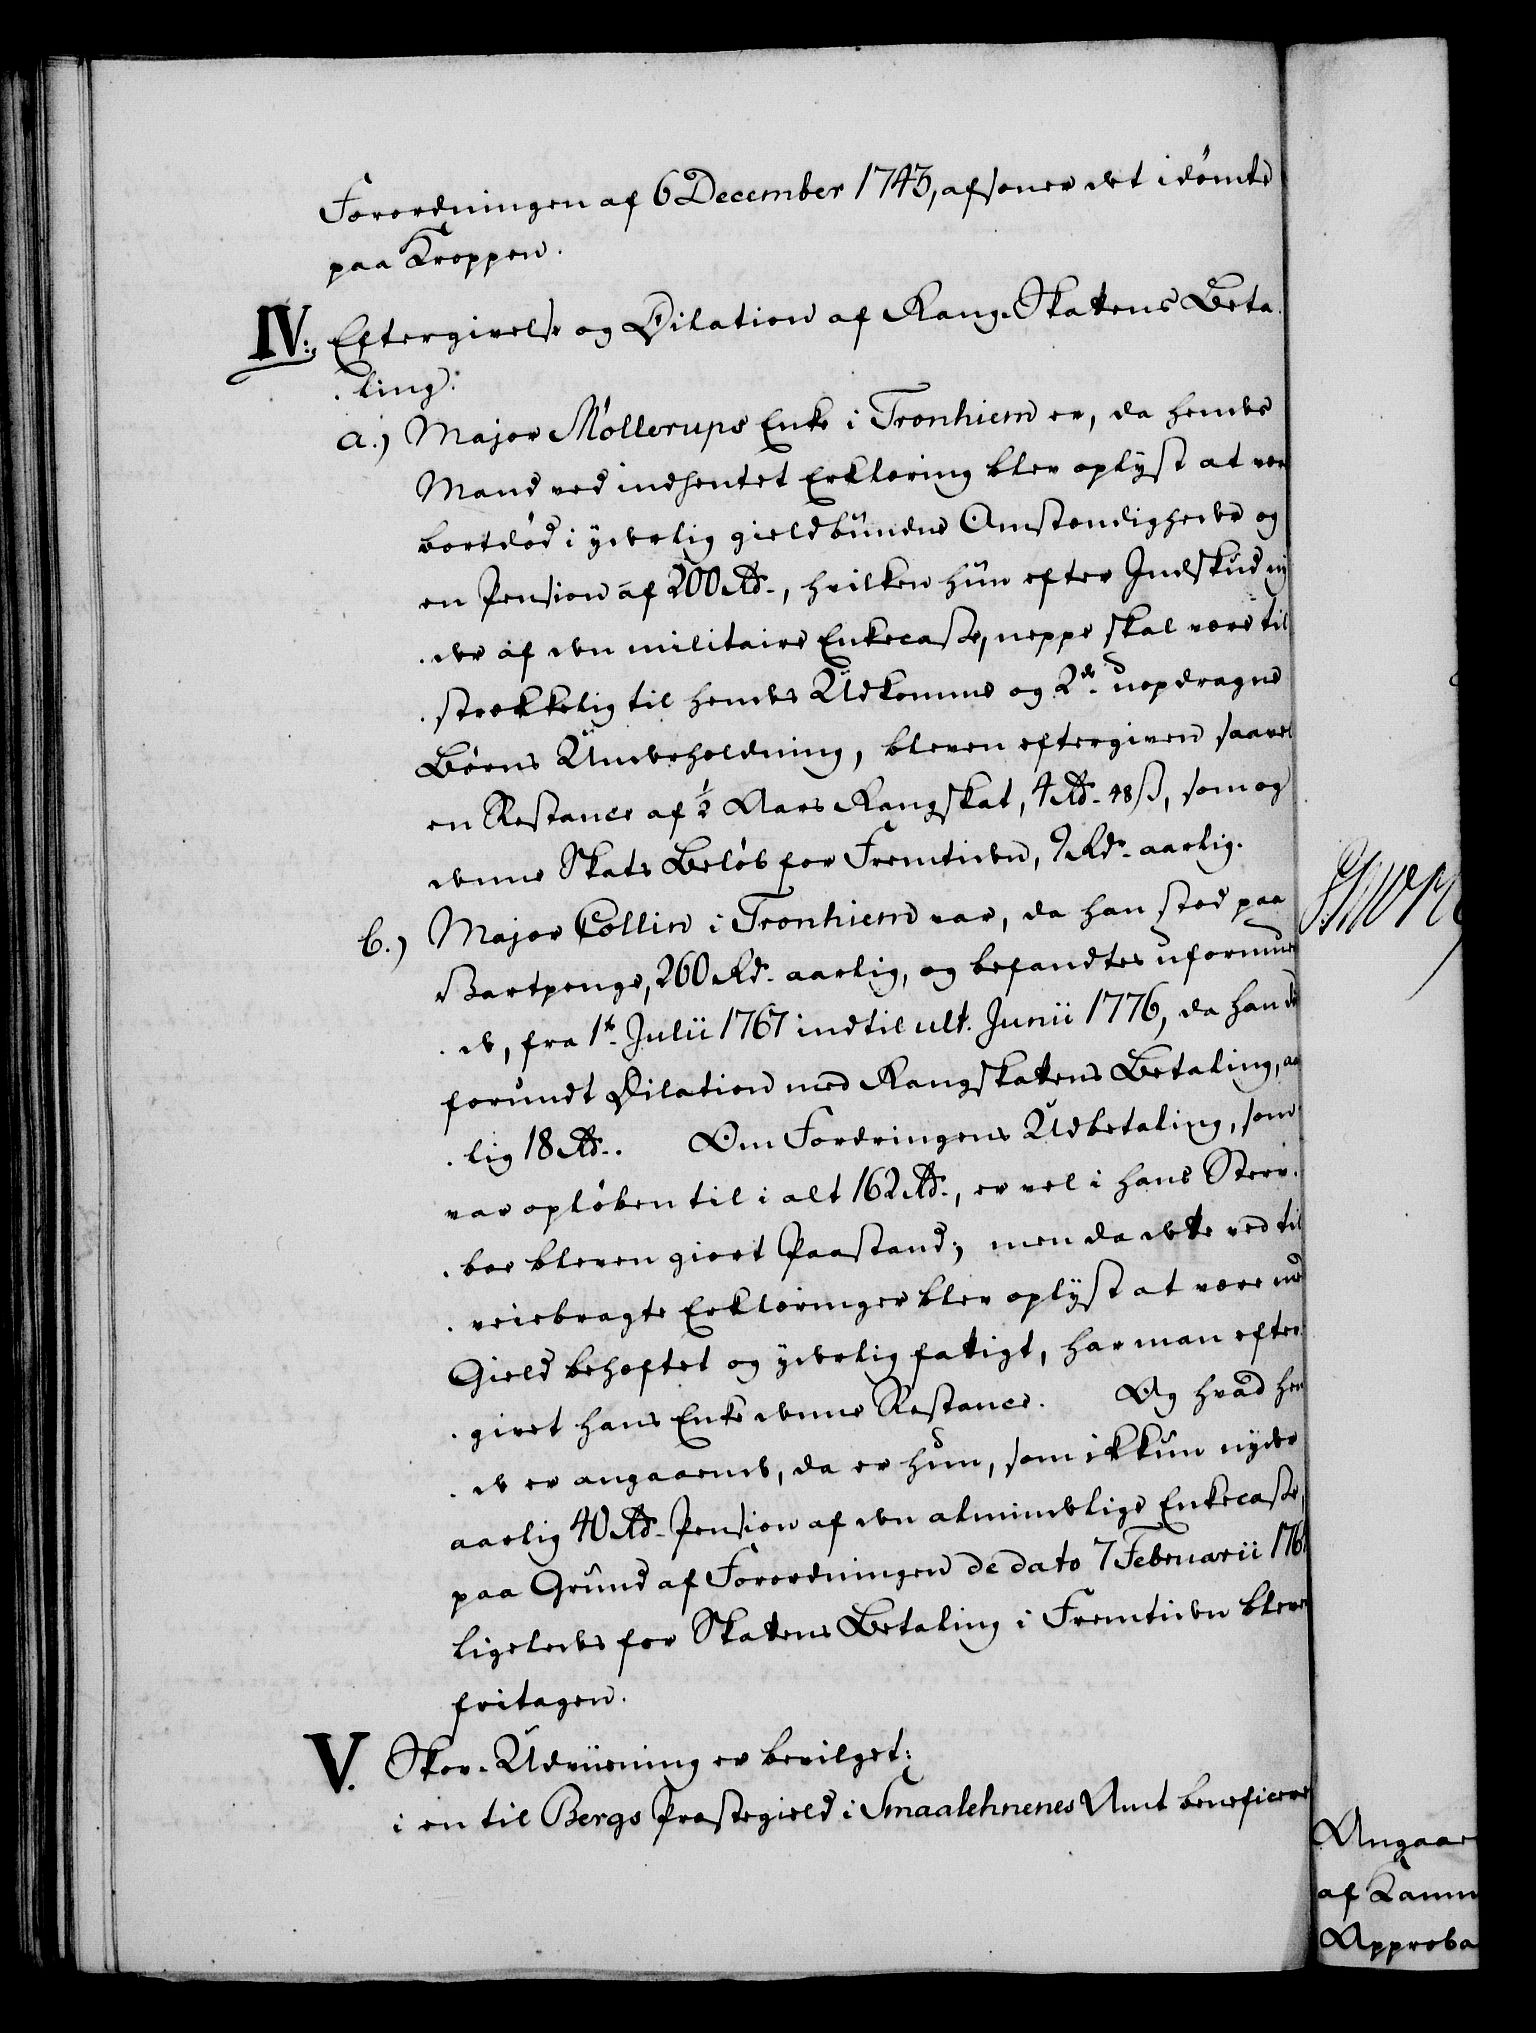 Forordningen af 6 December 1743, afsoner det idömte
paa Kroppen.
IV: Eftergivelse og Dilation af Rang-Skattens Beta-
-ling:
a.) Major Möllerups Enke i Tronhiem er, da hendes
Mand ved indhentet Erklæring blev oplyst at være
bortdöd i yderlig gieldbundne Omstændigheder og
en Pension af 200 Rd., hvilken hun efter Indskud ny-
-der af den militaire Enkecasse, neppe skal være til-
-strækkelig til hendes Udkomme og 2de uopdragne
Börns Underholdning, bleven eftergiven saavel
en Restance af ½ Aars Rangskat, 4 Rd. 48 ß, som og
denne Skats Belöb for Fremtiden, 9 Rd. aarlig.
b.) Major Collin i Tronhiem var, da han stod paa
Vartpenge, 260 Rd. aarlig, og befandtes uformuen-
-de, fra 1te Julii 1767 indtil ult. Junii 1776, da han
forundt Dilation med Rangskattens Betaling, aar-
-lig 18 Rd.. Om Fordringens Udbetaling, som
var oplöben til i alt 162 Rd., er vel i hans Sterv-
-boe bleven giort Paastand; men da dette ved til-
-veiebragte Erklæringer blev oplyst at være med
Gield behæftet og yderlig fattigt, har man efter-
-givet hans Enke denne Restance. Og hvad hen-
-de er angaaende, da er hun, som ikkun nyder
aarlig 40 Rd. Pension af den almindelige Enkecasse,
paa Grund af Forordningen de dato 7 Februarii 176
ligeledes for Skattens Betaling i Fremtiden bleven
fritagen.
V. Skov-Udviisning er bevilget:
i en til Bergs Præstegield i Smaalehnenes Amt beneficeret
Angaae
af Kamm
Approba